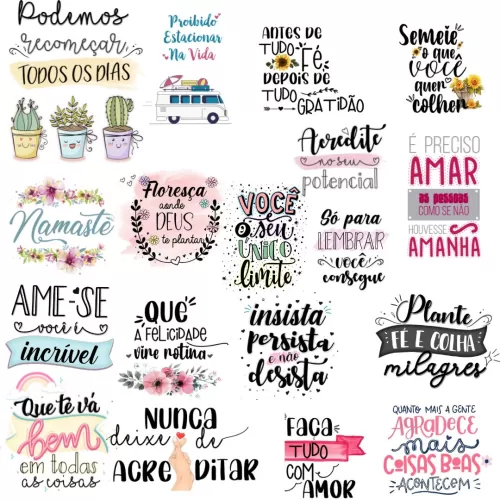 Podemos
recomeçar
TODOS OS DIAS
PROIBIDO
ESTACIONAR
NA VIDA
ANTES DE
TUDO FÉ
DEPOIS DE
TUDO GRATIDÃO
Semeie
o que
você
quer
colher
Acredite
no seu
potencial
É PRECISO
AMAR
as pessoas
COMO SE NÃO
HOUVESSE
AMANHÃ
Namastê
Floresça
aonde
DEUS
te plantar
VOCÊ
é seu
ÚNICO
limite
Só para
LEMBRAR
você
consegue
AME-SE
você é
incrível
QUE
A FELICIDADE
vire rotina
insista
persista
e não
desista
Plante
FÉ E COLHA
milagres
Que te vá
bem
em todas
as coisas
NUNCA
deixe de
ACREDITAR
FAÇA
TUDO
COM
AMOR
QUANTO MAIS A GENTE
AGRADECE
mais
COISAS BOAS
ACONTECEM